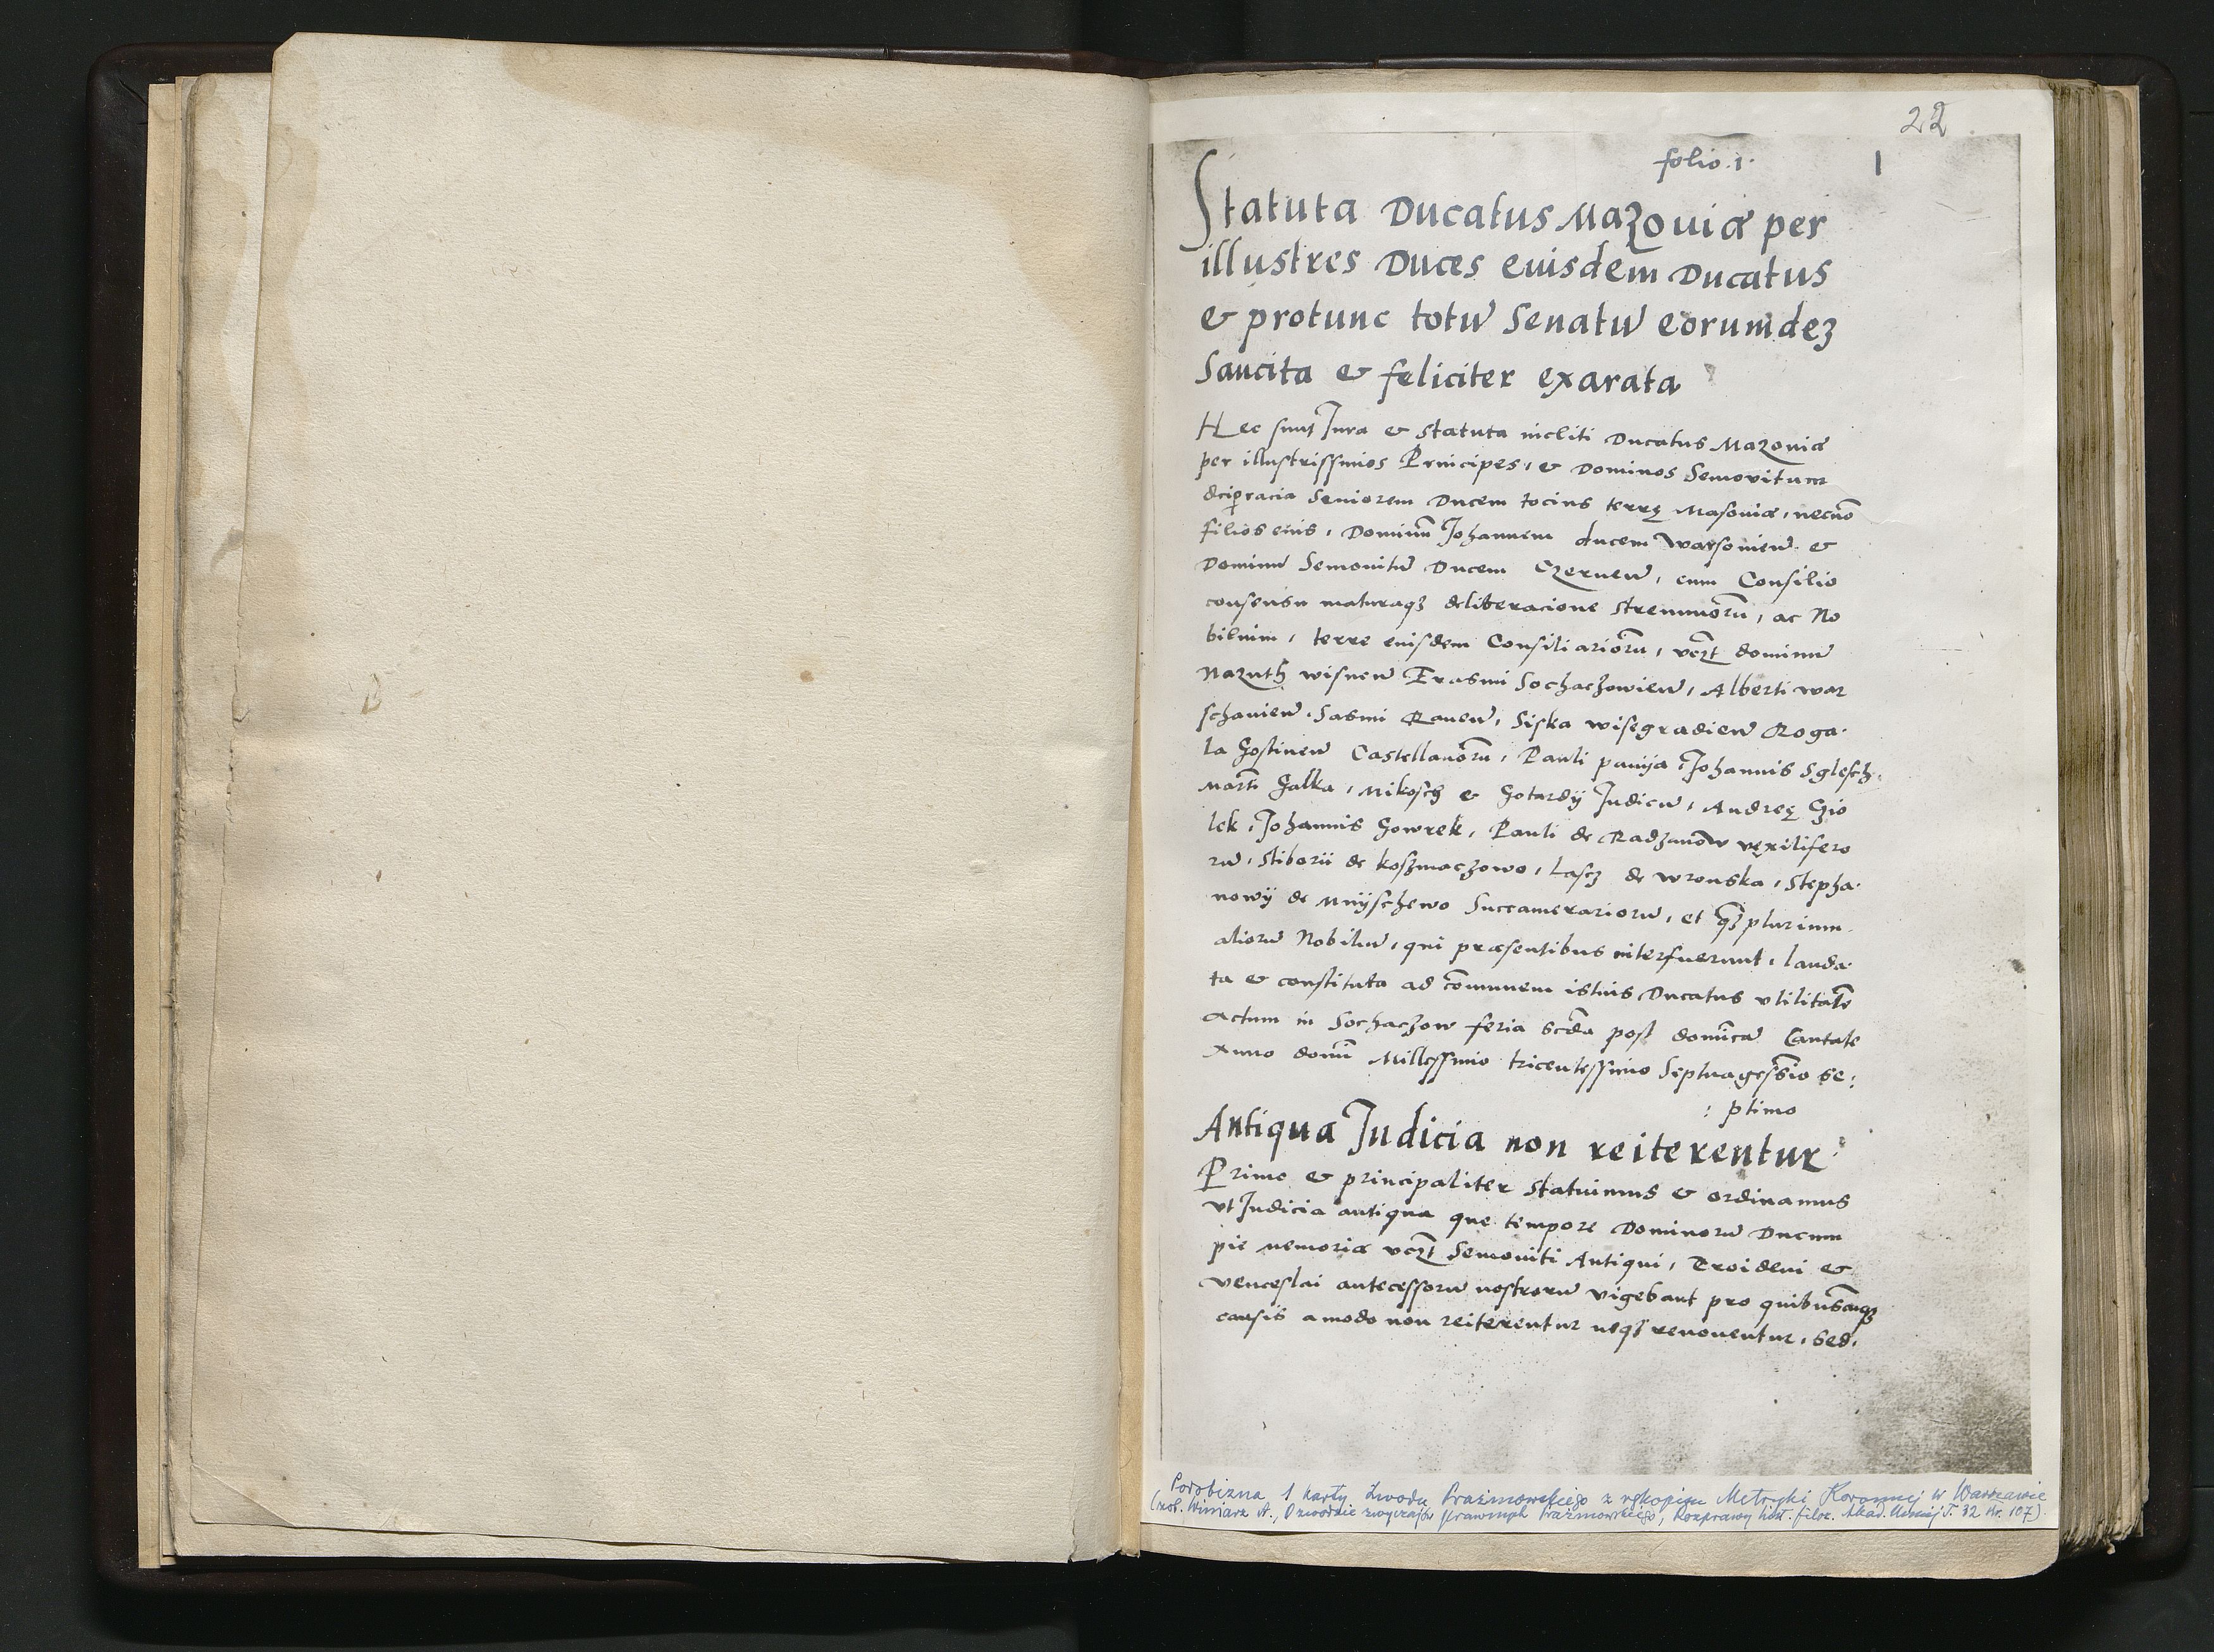 22
folio .1.
1
Statuta Ducatus Mazouiæ per
illustres Duces euisdem Ducatus
& protunc totū Senatū eorumdeȝ
Sancita & feliciter exarata
Hec sunt Jura & Statuta incliti Ducatus Mazouiæ
per illustrissimos Principes, & Dominos Semovitum
dei gracia Seniorem Ducem tocius terrę Masouiæ, necnō
filios eius, Dominū Johannem ducem Warsouien̄ &
Dominū Semouitū Ducem Czernen̄, cum Consilio
consensu maturaqȝ deliberacione strennuorū, ac No
bilium, terre euisdem Consiliariorū, vczt dominū
Nazuth wisnen̄ Erasmi Sochaczowien̄, Alberti war
schauien̄. Sasmi Rauen̄, Siska wisegradien̄ Roga.
la Gostinen̄ Castellanorū, Pauli pauija, Johannis Sglesch.
Marti Galka, Mikosch & Gotardÿ Judicū, Andreę Gio
lek, Johannis Gowrek, Pauli de Radzanow vexilifero
rū, Stiborii de koszmaczowo, Lascz de wronska, Stepha.
nowÿ de Mnÿschewo Succamerariorū, et qȝplurium
aliorū Nobiliū, qui præsentibus interfuerunt, lauda.
ta & constituta ad cōmunem istius Ducatus vtilitatē
Actum in Sochaczow feria scda post dominicā Cantate
Anno domī Millessimo tricentessimo Septuagessimo se:
: ptimo
Antiqua Judicia non reiterentur
Primo & principaliter Statuimus & ordinamus
vt Judicia antiqua que tempore Dominorū Ducum
pie memoriæ vczt Semouiti Antiqui, Troideni &
venceslai antecessorū nostrorū vigebant pro quibuscūqȝ
causis amodo non reiterentur neqȝ renouentur, sed.
Podobizna 1 karty Zwodu Prażmowskiego z rękopisu Metryki Koronnej w Warszawie
(zob. Winiarz A., O zwodzie zwyczajów prawnych Prażmowskiego, Rozprawy hist. filoz. Akad. Umiej T. 32 str. 107)